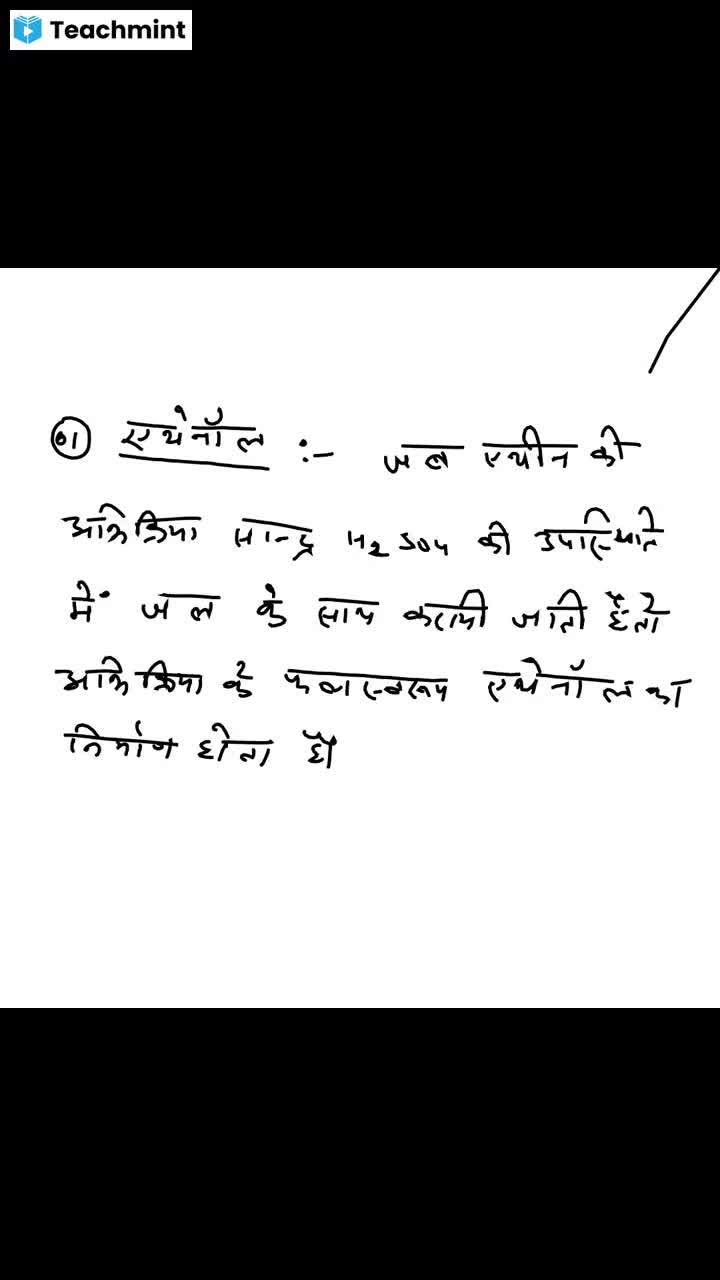 Teachmint
01 एथेनॉल :- जब एथीन की
अभिक्रिया सान्द्र H2SO4 की उपस्थिति
में जल के साथ करायी जाती है तो
अभिक्रिया के फलस्वरूप एथेनॉल का
निर्माण होता है